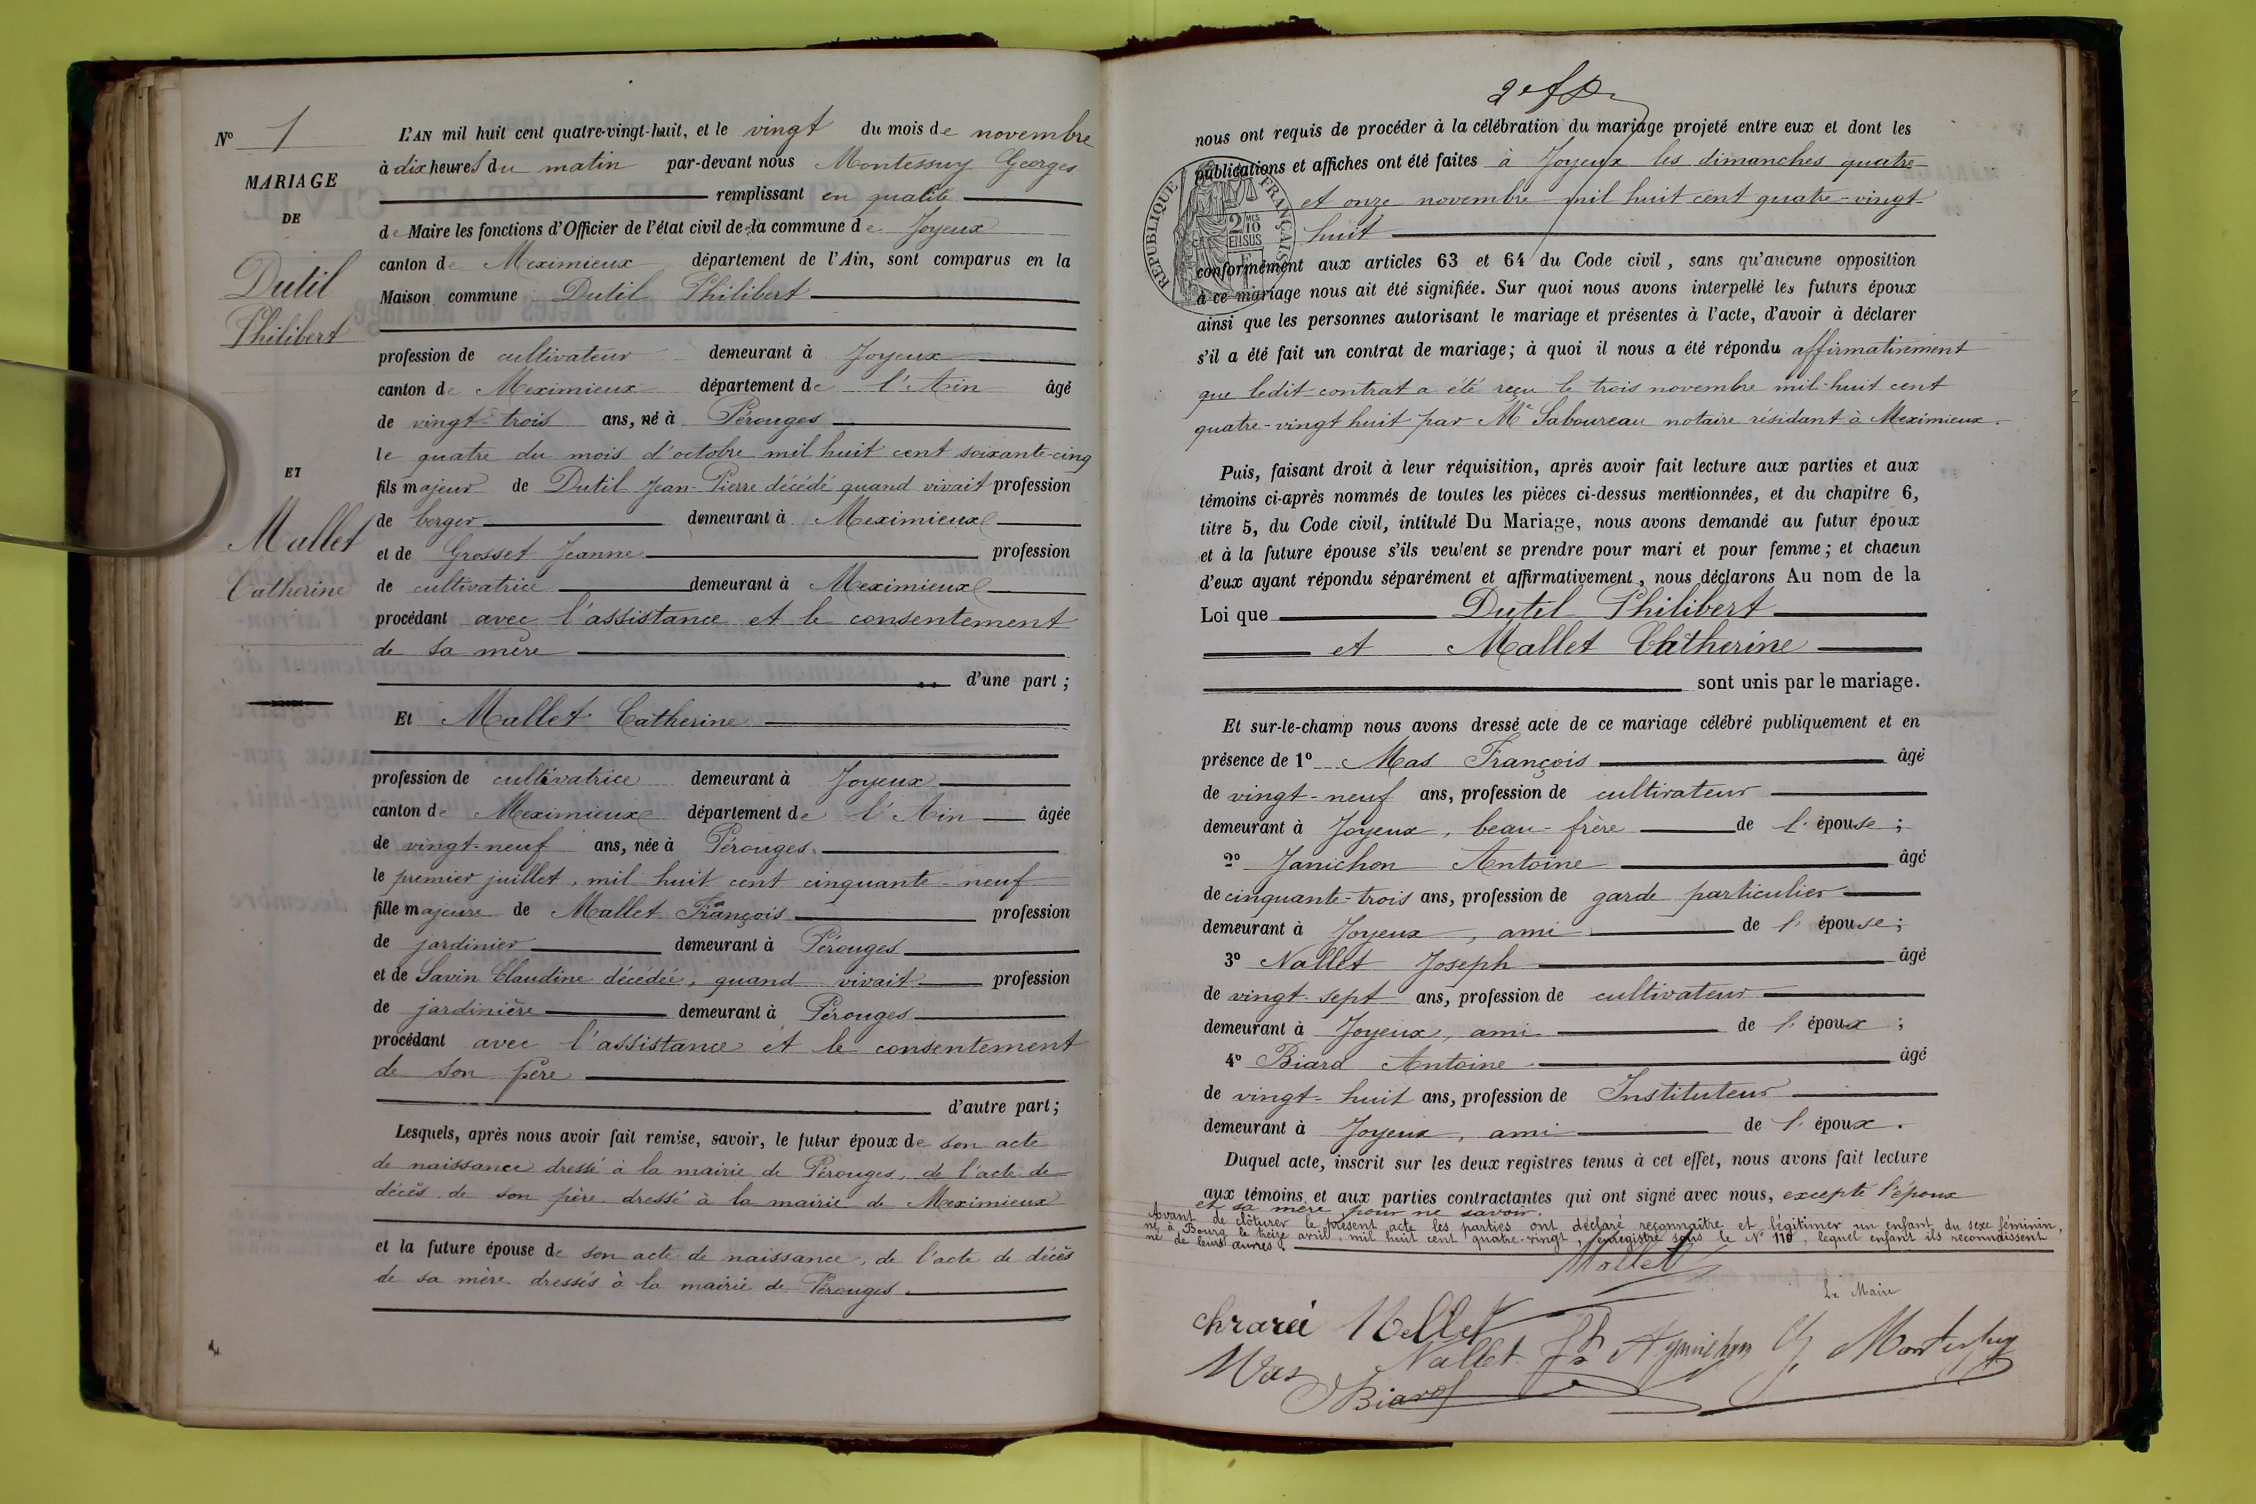 N° 1
MARIAGE
DE
Dutil
Philibert
ET
Mallet
Catherine
L'AN mil huit cent quatre-vingt-huit, et le vingt du mois de novembre
à dix heures du matin par-devant nous Montessuy Georges
remplissant en qualité
de Maire les fonctions d'Officier de l'état civil de la commune de Joyeux
canton de Meximieux département de l'Ain, sont comparus en la
Maison commune Dutil Philibert
profession de cultivateur demeurant à Joyeux
canton de Meximieux département de l'Ain âgé
de vingt-trois ans, né à Pérouges
le quatre du mois d'octobre mil huit cent soixante-cinq
fils majeur de Dutil Jean-Pierre décédé quand vivait profession
de berger demeurant à Meximieux
et de Grosset Jeanne profession
de cultivatrice demeurant à Meximieux
procédant avec l'assistance et le consentement
de sa mère
d'une part ;
Et Mallet Catherine
profession de cultivatrice demeurant à Joyeux
canton de Meximieux département de l'Ain âgée
de vingt-neuf ans, née à Pérouges
le premier juillet, mil huit cent cinquante-neuf
fille majeure de Mallet François profession
de jardinier demeurant à Pérouges
et de Savin Claudine décédée, quand vivait profession
de jardinière demeurant à Pérouges
procédant avec l'assistance et le consentement
de son père
d'autre part ;
Lesquels, après nous avoir fait remise, savoir, le futur époux de son acte
de naissance dressé à la mairie de Pérouges, de l'acte de
décès de son père dressé à la mairie de Meximieux
et la future épouse de son acte de naissance, de l'acte de décès
de sa mère dressés à la mairie de Pérouges
nous ont requis de procéder à la célébration du mariage projeté entre eux et dont les
publications et affiches ont été faites à Joyeux les dimanches quatre
et onze novembre mil huit cent quatre-vingt
huit
RÉPUBLIQUE FRANÇAISE
2/10 EN SUS
conformément aux articles 63 et 64 du Code civil, sans qu'aucune opposition
à ce mariage nous ait été signifiée. Sur quoi nous avons interpellé les futurs époux
ainsi que les personnes autorisant le mariage et présentes à l'acte, d'avoir à déclarer
s'il a été fait un contrat de mariage; à quoi il nous a été répondu affirmativement
que ledit contrat a été reçu le trois novembre mil-huit cent
quatre-vingt huit par Me Saboureau notaire résidant à Meximieux.
Puis, faisant droit à leur réquisition, après avoir fait lecture aux parties et aux
témoins ci-après nommés de toutes les pièces ci-dessus mentionnées, et du chapitre 6,
titre 5, du Code civil, intitulé Du Mariage, nous avons demandé au futur époux
et à la future épouse s'ils veulent se prendre pour mari et pour femme ; et chacun
d'eux ayant répondu séparément et affirmativement, nous déclarons Au nom de la
Loi que Dutil Philibert
et Mallet Catherine
sont unis par le mariage.
Et sur-le-champ nous avons dressé acte de ce mariage célébré publiquement et en
présence de 1° Mas François âgé
de vingt-neuf ans, profession de cultivateur
demeurant à Joyeux, beau-frère de l'épouse ;
2° Janichon Antoine âgé
de cinquante-trois ans, profession de garde particulier
demeurant à Joyeux, ami de l'épouse ;
3° Nallet Joseph âgé
de vingt-sept ans, profession de cultivateur
demeurant à Joyeux, ami de l'époux ;
4° Biard Antoine âgé
de vingt-huit ans, profession de Instituteur
demeurant à Joyeux, ami de l'époux.
Duquel acte, inscrit sur les deux registres tenus à cet effet, nous avons fait lecture
aux témoins et aux parties contractantes qui ont signé avec nous, excepté l'époux
et sa mère, pour ne savoir.
Avant de clôturer le présent acte les parties ont déclaré reconnaître et légitimer un enfant du sexe féminin,
né à Bourg le treize avril, mil huit cent quatre-vingt, enregistré sous le N° 110, lequel enfant ils reconnaissent
né de leurs œuvres.
Mallet
Le Maire
Mallet
Mas Nallet A Janichon G Montessuy
Biard